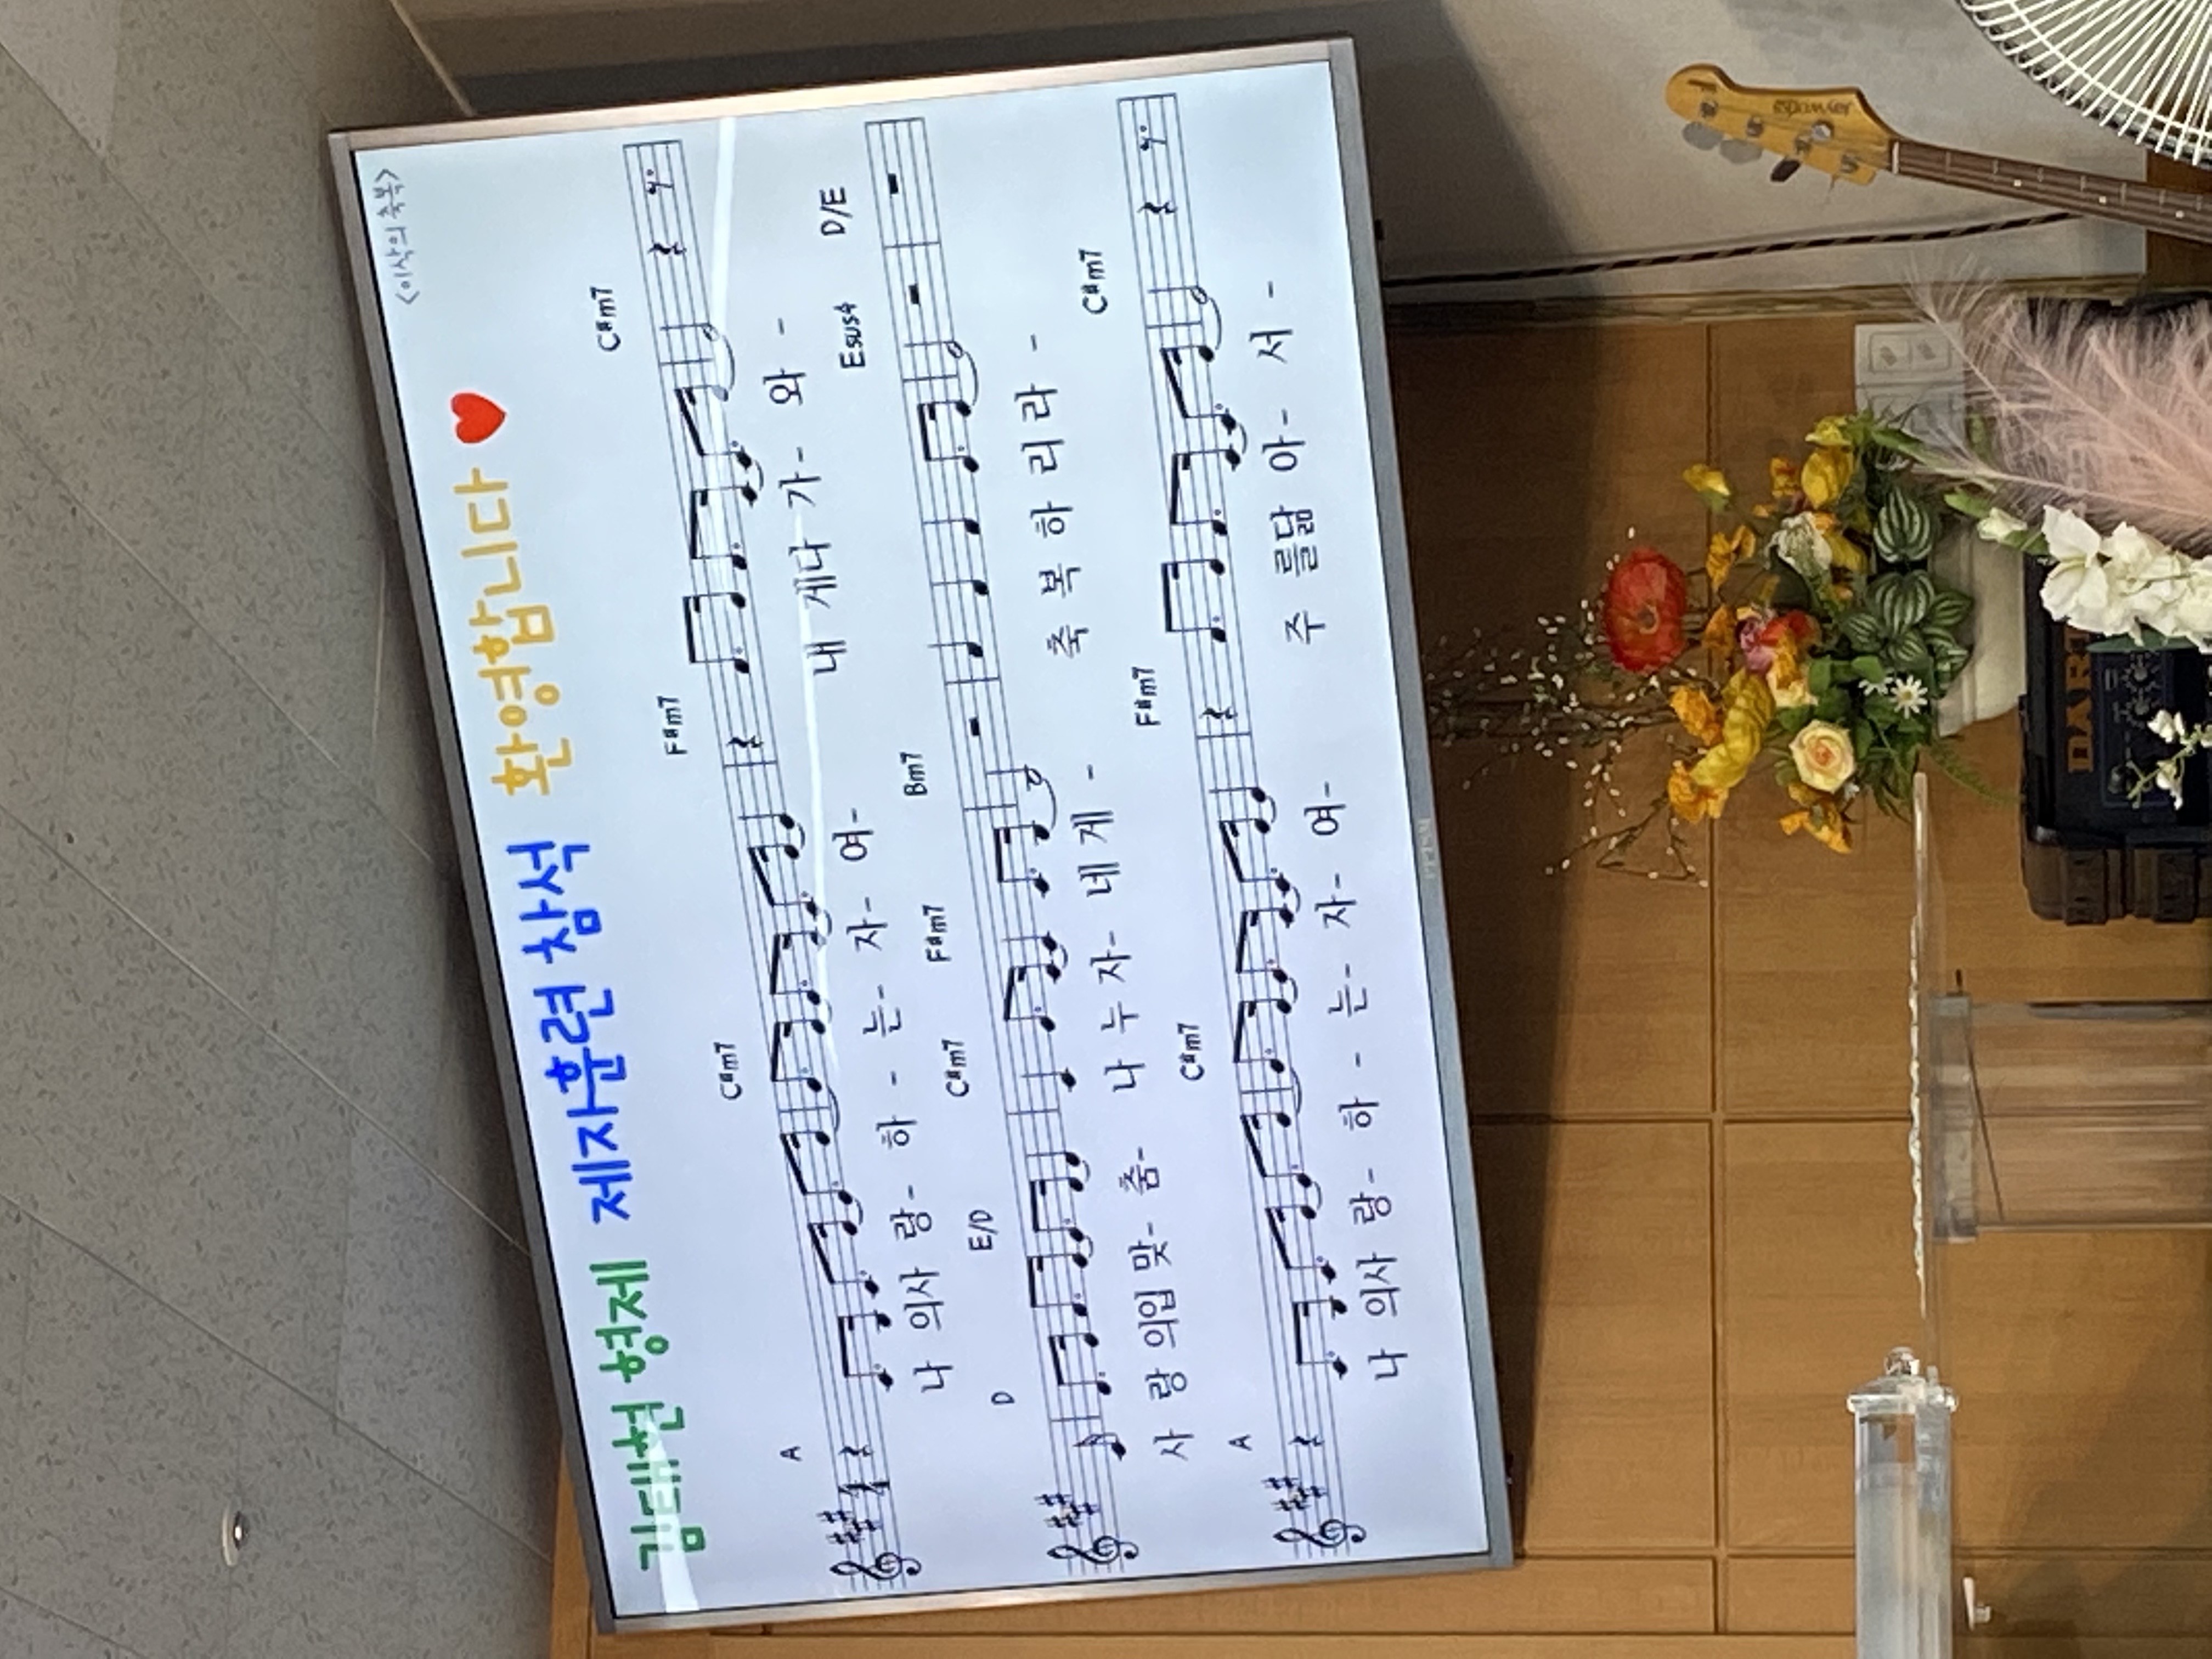 <이삭의 축복>
김태현 형제 제자훈련 참석 환영합니다
A C#m7 F#m7 C#m7
나 의사 랑- 하 - 는- 자- 여- 내 게다 가- 와 -
D E/D C#m7 F#m7 Bm7 Esus4 D/E
사 랑 의입 맞- 춤- 나 누 자- 네 게 - 축 복 하 리 라 -
A C#m7 F#m7 C#m7
나 의사 랑- 하 - 는- 자- 여- 주 를닮 아- 서 -